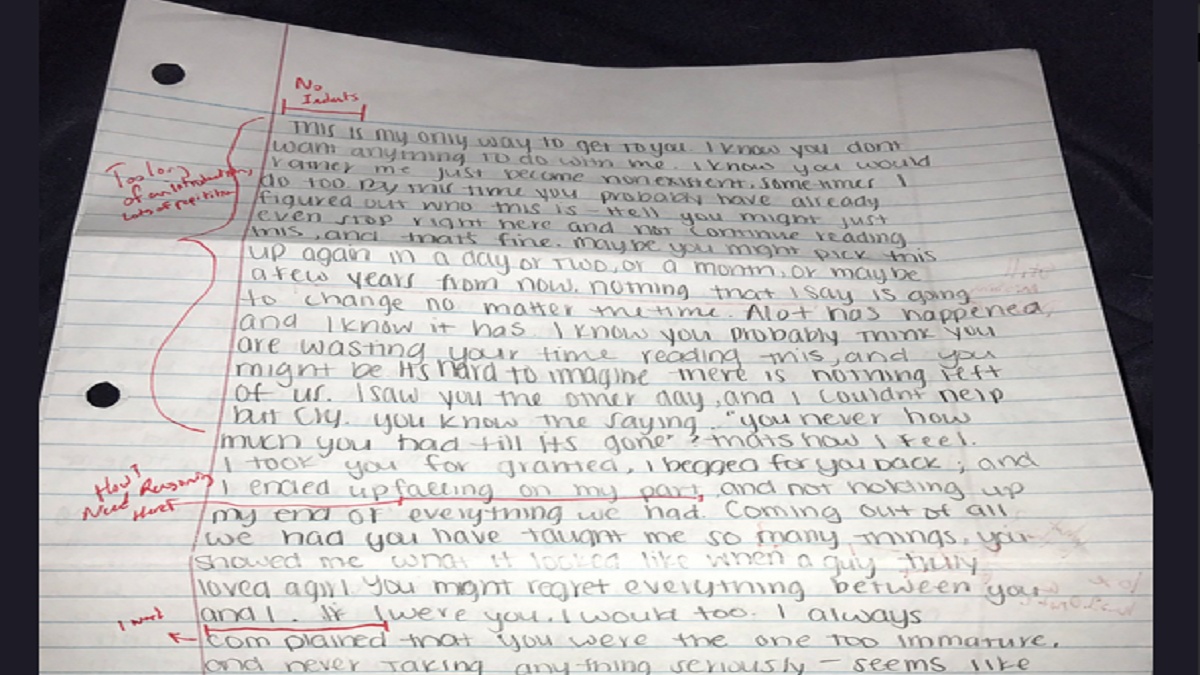 No
Indents
This is my only way to get to you. I know you dont
want anything to do with me. I know you would
rather me just become nonexistent. Sometimes I
do too. By this time you probably have already
figured out who this is - Hell you might just
even stop right here and not continue reading
this, and thats fine. maybe you might pick this
up again in a day or two, or a month, or maybe
a few years from now. nothing that I say is going
to change no matter the time. Alot has happened,
and I know it has. I know you probably think you
are wasting your time reading this, and you
might be. Its hard to imagine there is nothing left
of us. I saw you the other day, and I couldnt help
but cry. you know the saying "you never how
much you had till its gone" thats how I feel.
I took you for granted, I begged for you back, and
I ended up falling on my part, and not holding up
my end of everything we had. Coming out of all
we had you have taught me so many things. you
showed me what it looked like when a guy truly
loved a girl. You might regret everything between you
and I. If I were you, I would too. I always
complained that you were the one too immature,
and never taking anything seriously - seems like
Too long
of an introduction,
Lots of repitition
How?
Need Reasoning
Here